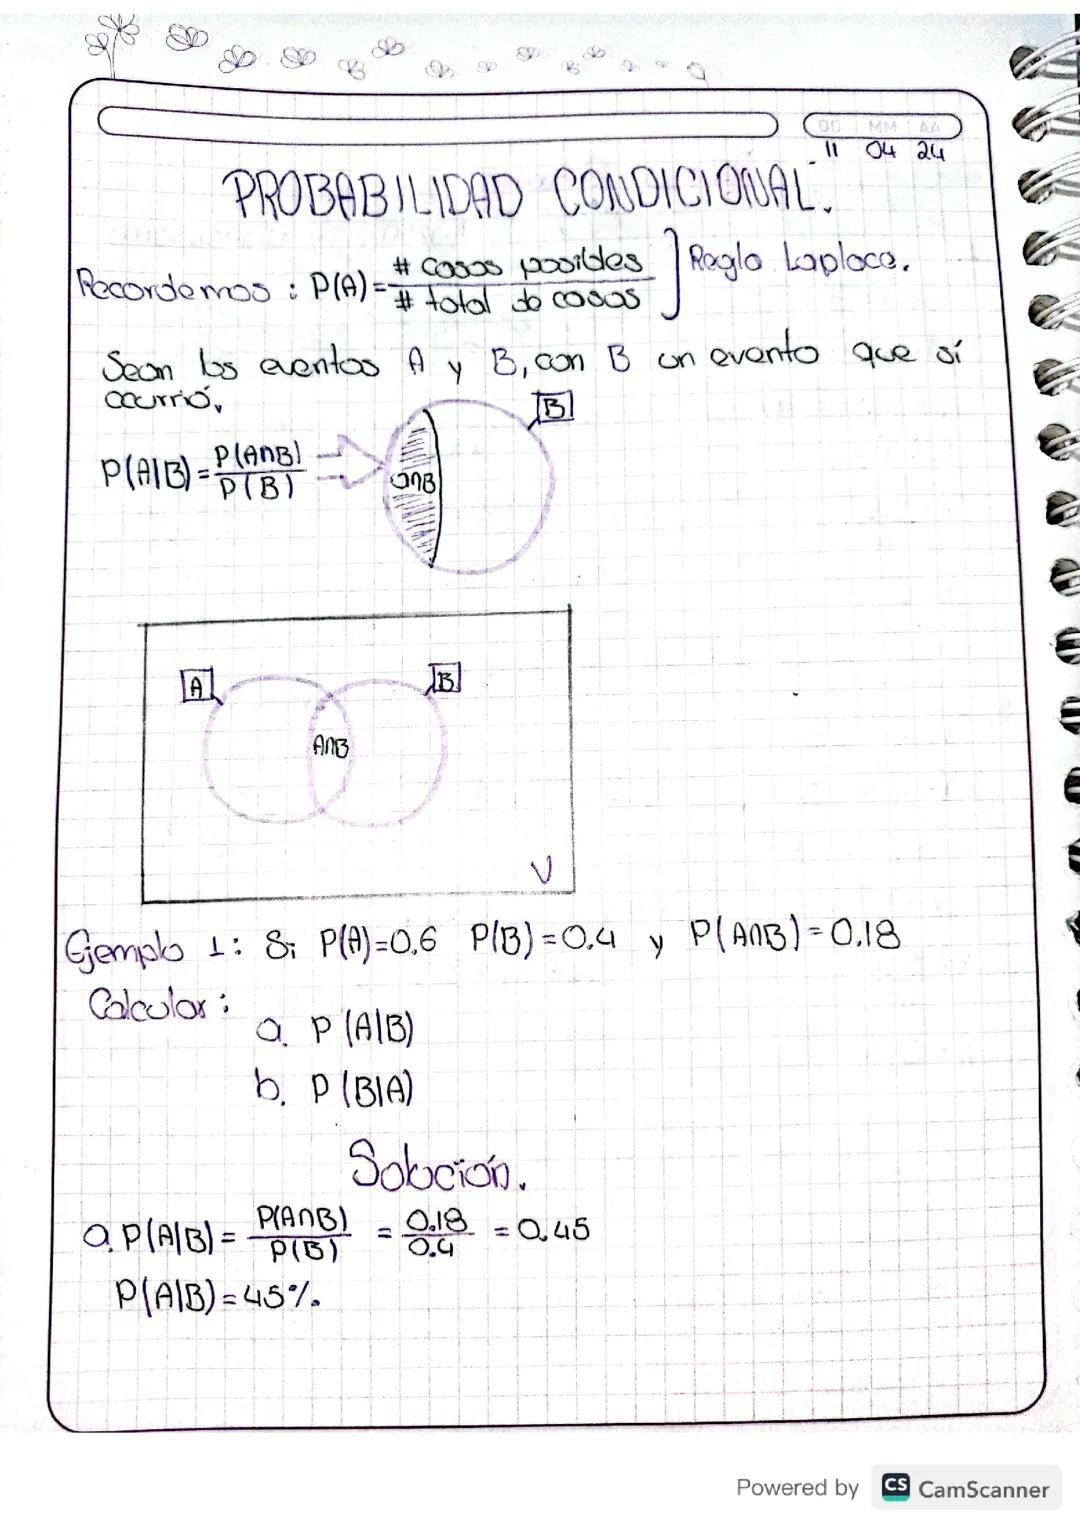 DD MM AA
11 04 24
PROBABILIDAD CONDICIONAL.
Recordemos : P(A)= # casos posibles / # total de casos ] Regla Laplace.
Sean los eventos A y B, con B un evento que sí
ocurrió,
B
P(A|B) = P(A∩B) / P(B)
A∩B
A
B
A∩B
U
Ejemplo 1: Si P(A)=0.6 P(B)=0.4 y P(A∩B)=0.18
Calcular:
a. P(A|B)
b. P(B|A)
Solución.
a. P(A|B) = P(A∩B) / P(B) = 0.18 / 0.4 = 0.45
P(A|B) = 45%.
Powered by CS CamScanner